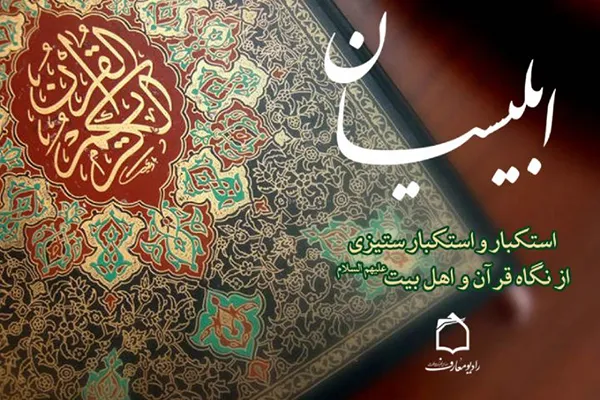 ابلیسیان
استکبار و استکبارستیزی
از نگاه قرآن و اهل بیت علیهم السلام
القرآن الکریم
رادیو معارف